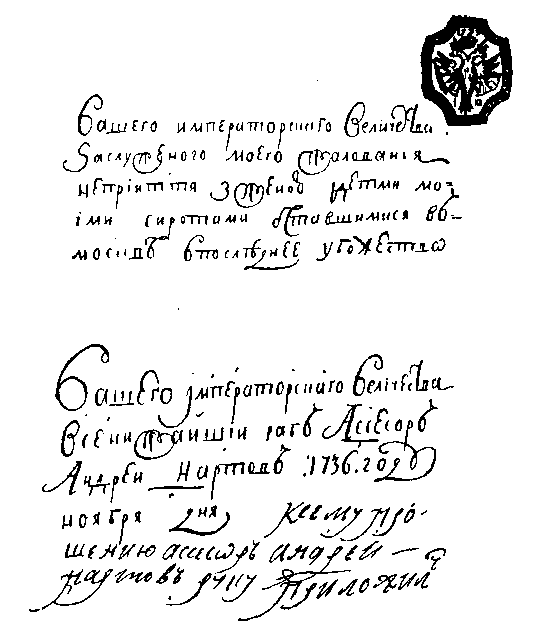 Вашего императорского Величества
Заслуженого моего жалованья
непріятія з женою детми мо-
іми сиротами оставшимися въ
въ последнее убожество
Вашего імператорскаго Величества
всенижайшіи рабъ Асесоръ
Андреи Нартовъ 1736 году
ноября дня ксему про-
шению асесоръ андреи
нартовъ руку приложилъ